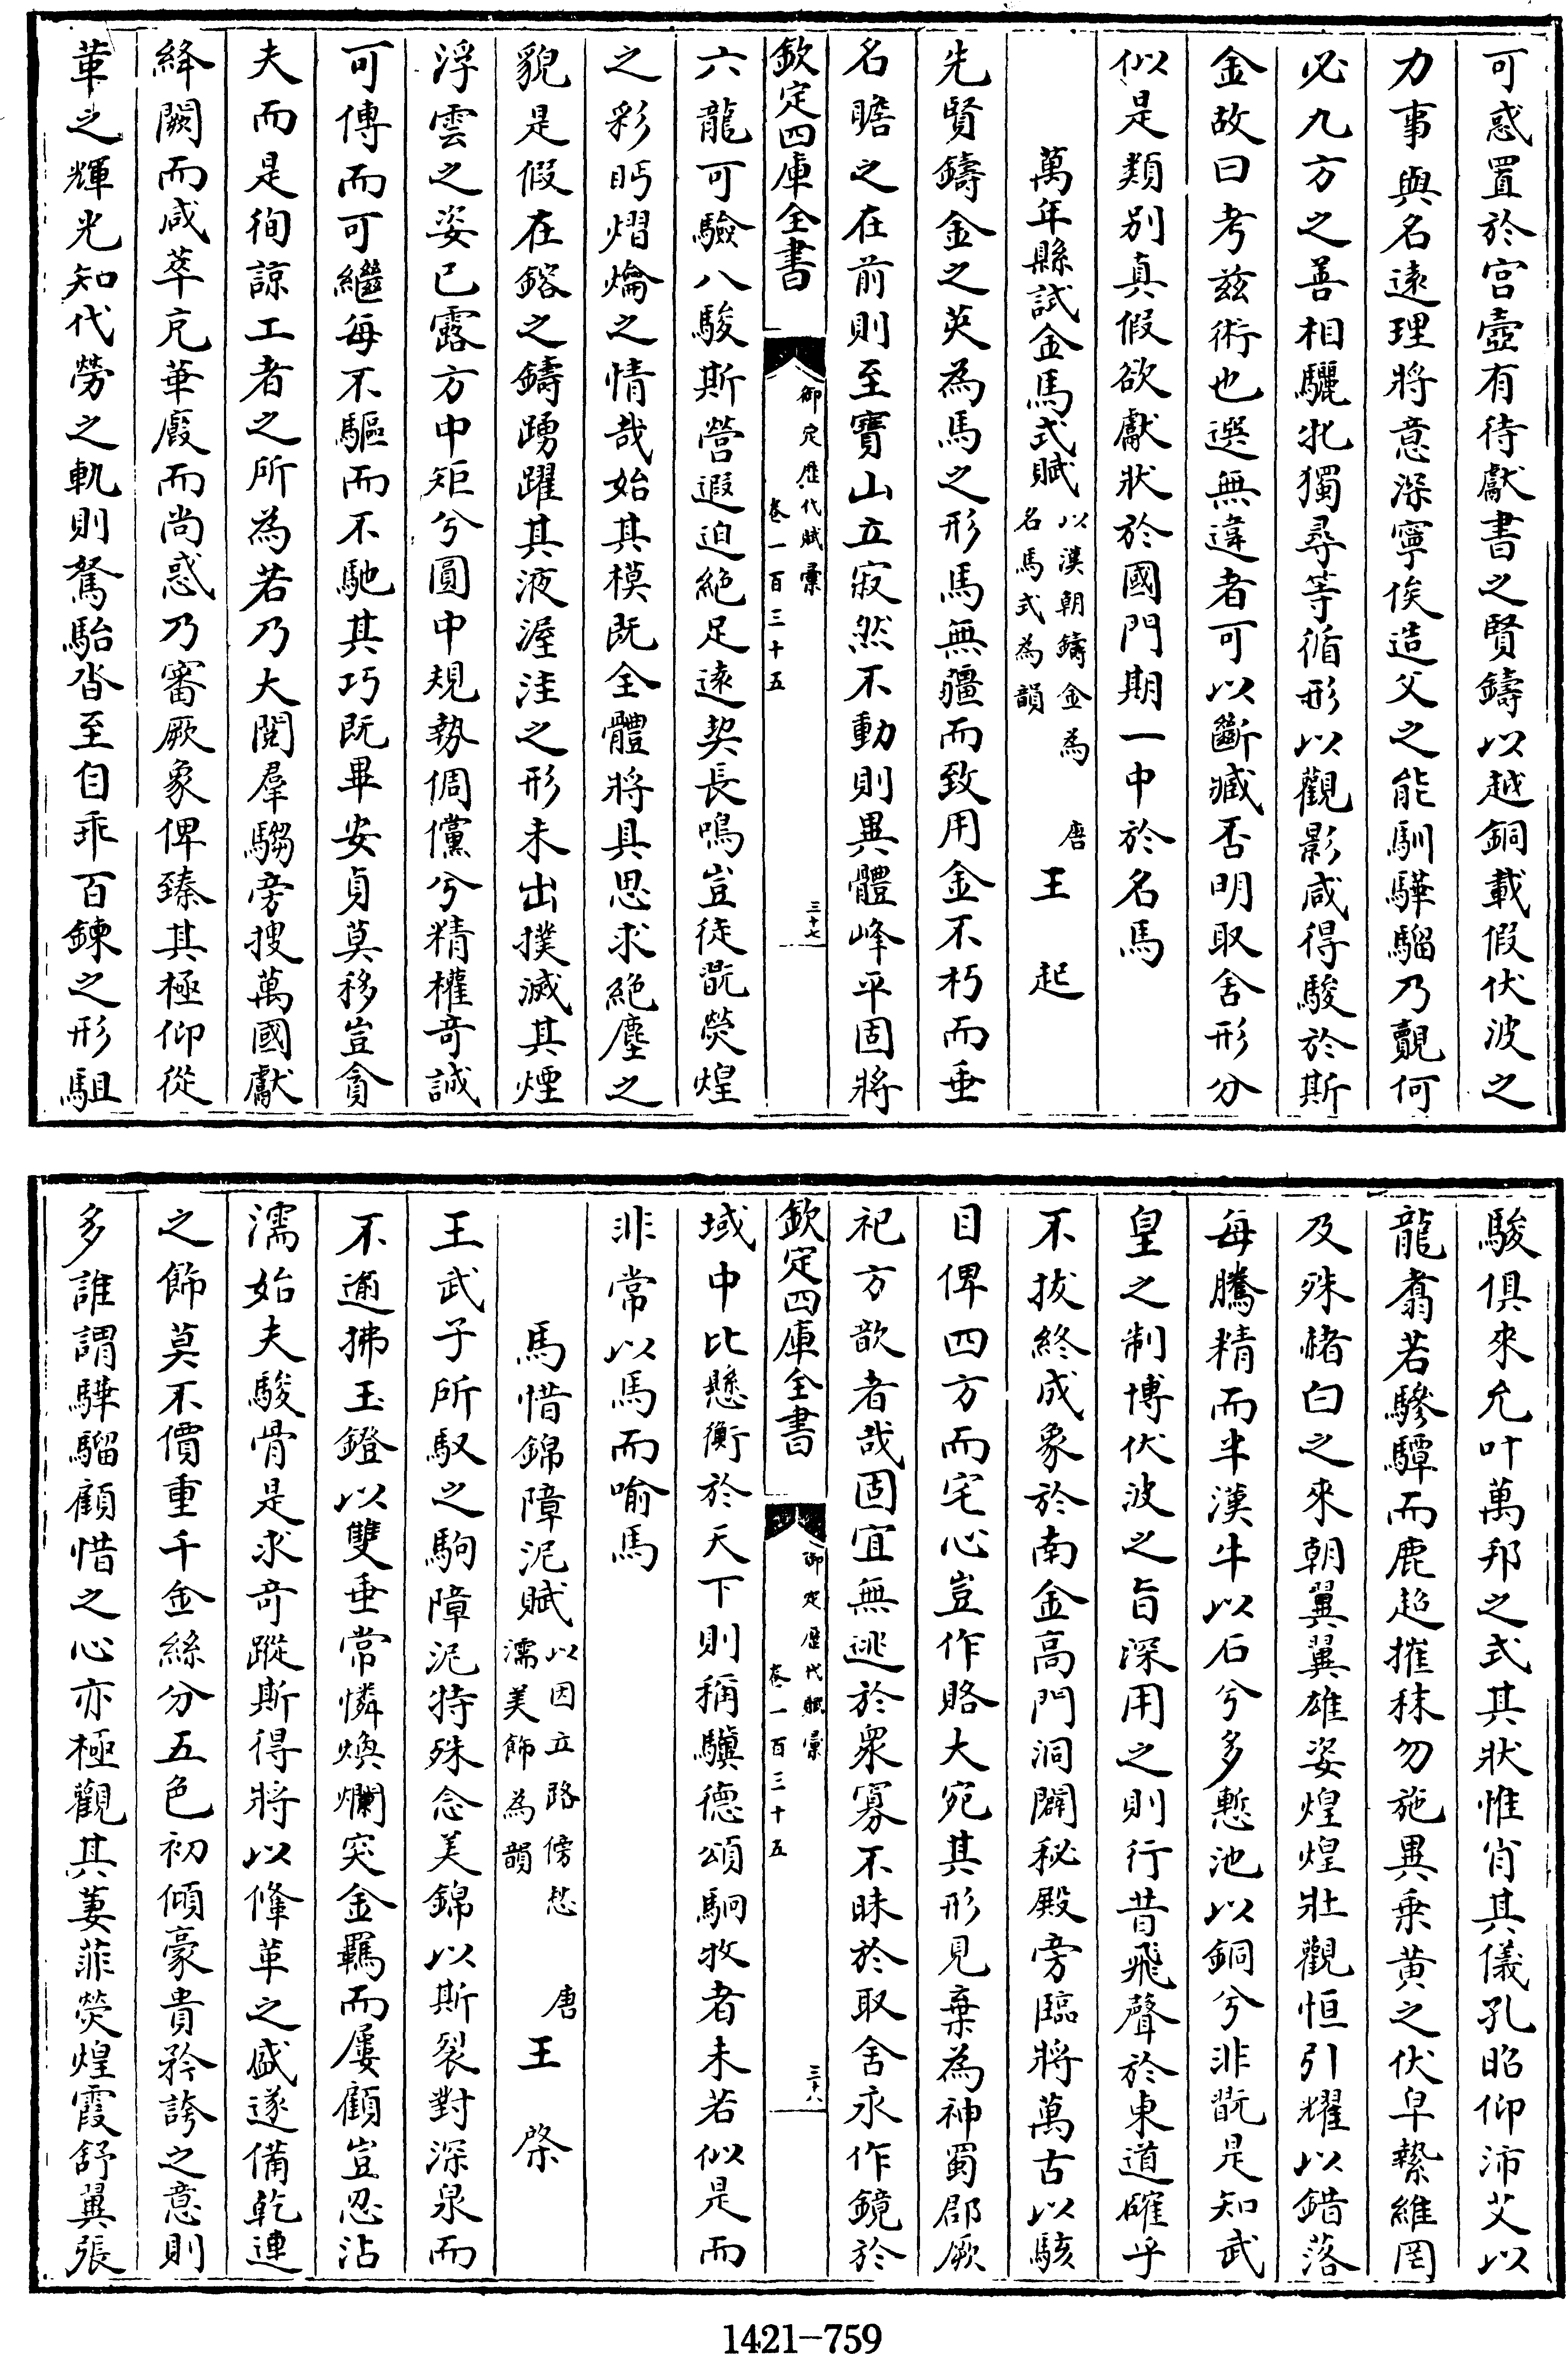 可惑置於宫壺有待獻書之賢鑄以越銅載假伏波之
力事與名遠理將意深寧俟造父之能馴驊騮乃覿何
必九方之善相驪牝獨尋等循形以觀影咸得駿於斯
金故曰考兹術也選無違者可以斷臧否明取舍形分
似是類別真假欲獻狀於國門期一中於名馬
萬年縣試金馬式賦以漢朝鑄金為名馬式為韻 唐王起
先賢鑄金之英為馬之形馬無疆而致用金不朽而垂
名瞻之在前則至寶山立寂然不動則異體峰平固將
欽定四庫全書 御定歷代賦彙卷一百三十五 三十七
六龍可驗八駿斯營遐迫絕足遠契長鳴豈徒翫熒煌
之彩眄熠爚之情哉始其模既全體將具思求絕塵之
貌是假在鎔之鑄踴躍其液渥洼之形未出撲滅其煙
浮雲之姿已露方中矩兮圓中規勢倜儻兮精權奇誠
可傳而可繼每不驅而不馳其巧既畢安貞莫移豈貪
夫而是徇諒工者之所為若乃大閱羣騶旁搜萬國獻
絳闕而咸萃充華廄而尚惑乃審厥象俾臻其極仰從
革之輝光知代勞之軌則駑駘沓至自乖百鍊之形駔
駿俱來允叶萬邦之式其狀惟肖其儀孔昭仰沛艾以
龍翥若驂驔而鹿超摧秣勿施異乗黄之伏皁縶維罔
及殊楮白之來朝翼翼雄姿煌煌壯觀恒引耀以錯落
每騰精而半漢牛以石兮多慙池以銅兮非翫是知武
皇之制博伏波之旨深用之則行昔飛聲於東道確乎
不拔終成象於南金高門洞闢秘殿旁臨將萬古以駭
目俾四方而宅心豈作賂大宛其形見棄為神蜀郡厥
祀方歆者哉固宜無逃於衆寡不昧於取舍永作鏡於
欽定四庫全書 御定歷代賦彙卷一百三十五 三十八
域中比懸衡於天下則稱驥德頌駉牧者未若似是而
非常以馬而喻馬
馬惜錦障泥賦以因立路傍愁濡美飾為韻 唐王棨
王武子所馭之駒障泥特殊念美錦以斯裂對深泉而
不逾拂玉鐙以雙垂常憐煥爛突金羈而屢顧豈忍沾
濡始夫駿骨是求奇蹤斯得將以鞗革之盛遂備乾連
之飾莫不價重千金絲分五色初傾豪貴矜誇之意則
多誰謂驊騮顧惜之心亦極觀其萋菲熒煌霞舒翼張
1421-759